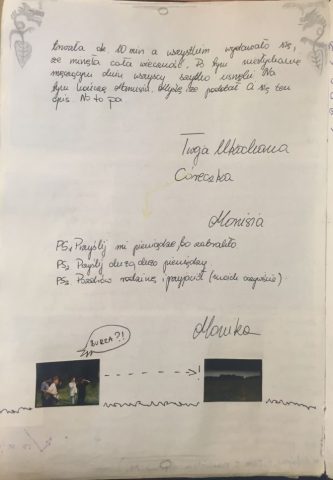 trwała ok 10 min a wszystkim wydawało się,
że minęła cała wieczność. Po tym niesłychanie
męczącym dniu wszyscy szybko usnęli. Na
tym kończę Mamusiu. Myślę że podobał Ci się ten
opis. No to pa
Twoja Ukochana
Córeczka
Monisia
PS1 Przyślij mi pieniądze, bo zabrakło
PS2 Przyślij dużo, dużo pieniędzy
PS3 Pozdrów rodzinę, przyjaciół (moich oczywiście)
Monika
BURZA?!
!